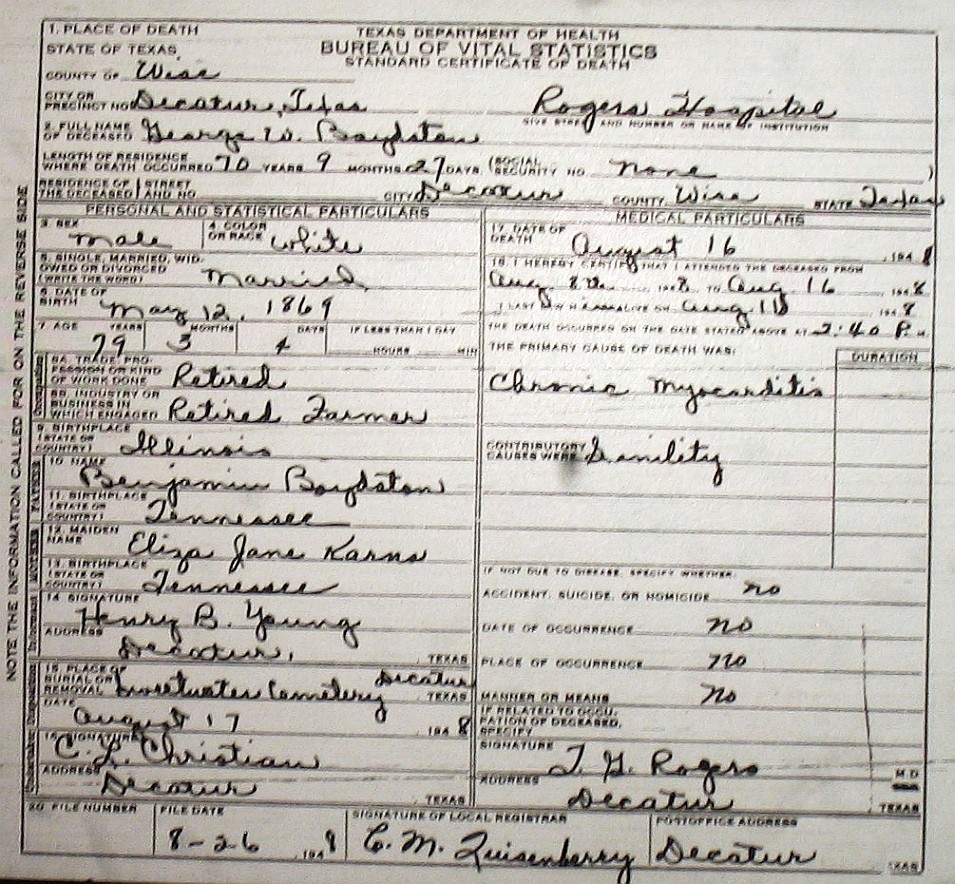 1. PLACE OF DEATH
STATE OF TEXAS
COUNTY OF Wise
TEXAS DEPARTMENT OF HEALTH
BUREAU OF VITAL STATISTICS
STANDARD CERTIFICATE OF DEATH
CITY OR PRECINCT NO. Decatur, Texas
Rogers Hospital
GIVE STREET AND NUMBER OR NAME OF INSTITUTION
2. FULL NAME OF DECEASED George W. Boydston
LENGTH OF RESIDENCE WHERE DEATH OCCURRED 70 YEARS 9 MONTHS 27 DAYS (SOCIAL SECURITY NO. none )
RESIDENCE OF THE DECEASED STREET AND NO. CITY Decatur COUNTY Wise STATE Texas
PERSONAL AND STATISTICAL PARTICULARS
3. SEX male
4. COLOR OR RACE white
5. SINGLE, MARRIED, WIDOWED OR DIVORCED (WRITE THE WORD) Married
6. DATE OF BIRTH May 12, 1869
7. AGE YEARS MONTHS DAYS IF LESS THAN 1 DAY
79 3 4 HOURS MIN
Occupation
8A. TRADE, PROFESSION OR KIND OF WORK DONE Retired
8B. INDUSTRY OR BUSINESS IN WHICH ENGAGED Retired Farmer
9. BIRTHPLACE (STATE OR COUNTRY) Illinois
FATHER
10. NAME Benjamin Boydston
11. BIRTHPLACE (STATE OR COUNTRY) Tennessee
MOTHER
12. MAIDEN NAME Eliza Jane Karns
13. BIRTHPLACE (STATE OR COUNTRY) Tennessee
Informant
14. SIGNATURE Henry B. Young
ADDRESS Decatur, TEXAS
15. PLACE OF BURIAL OR REMOVAL Sweetwater Cemetery Decatur TEXAS
DATE August 17 1948
Undertaker
16. SIGNATURE C. L. Christian
ADDRESS Decatur TEXAS
MEDICAL PARTICULARS
17. DATE OF DEATH August 16, 1948
18. I HEREBY CERTIFY THAT I ATTENDED THE DECEASED FROM
Aug. 8th 1948 TO Aug. 16, 1948
I LAST SAW H im ALIVE ON Aug. 1948
THE DEATH OCCURRED ON THE DATE STATED ABOVE AT 2:40 P.M.
THE PRIMARY CAUSE OF DEATH WAS: DURATION
Chronic Myocarditis
CONTRIBUTORY CAUSES WERE Senility
IF NOT DUE TO DISEASE, SPECIFY WHETHER:
ACCIDENT, SUICIDE, OR HOMICIDE no
DATE OF OCCURRENCE no
PLACE OF OCCURRENCE no
MANNER OR MEANS no
IF RELATED TO OCCUPATION OF DECEASED, SPECIFY
SIGNATURE T. G. Rogers M D
ADDRESS Decatur TEXAS
20. FILE NUMBER
FILE DATE 8-26, 1948
SIGNATURE OF LOCAL REGISTRAR C. M. Quisenberry
POSTOFFICE ADDRESS Decatur TEXAS
NOTE THE INFORMATION CALLED FOR ON THE REVERSE SIDE